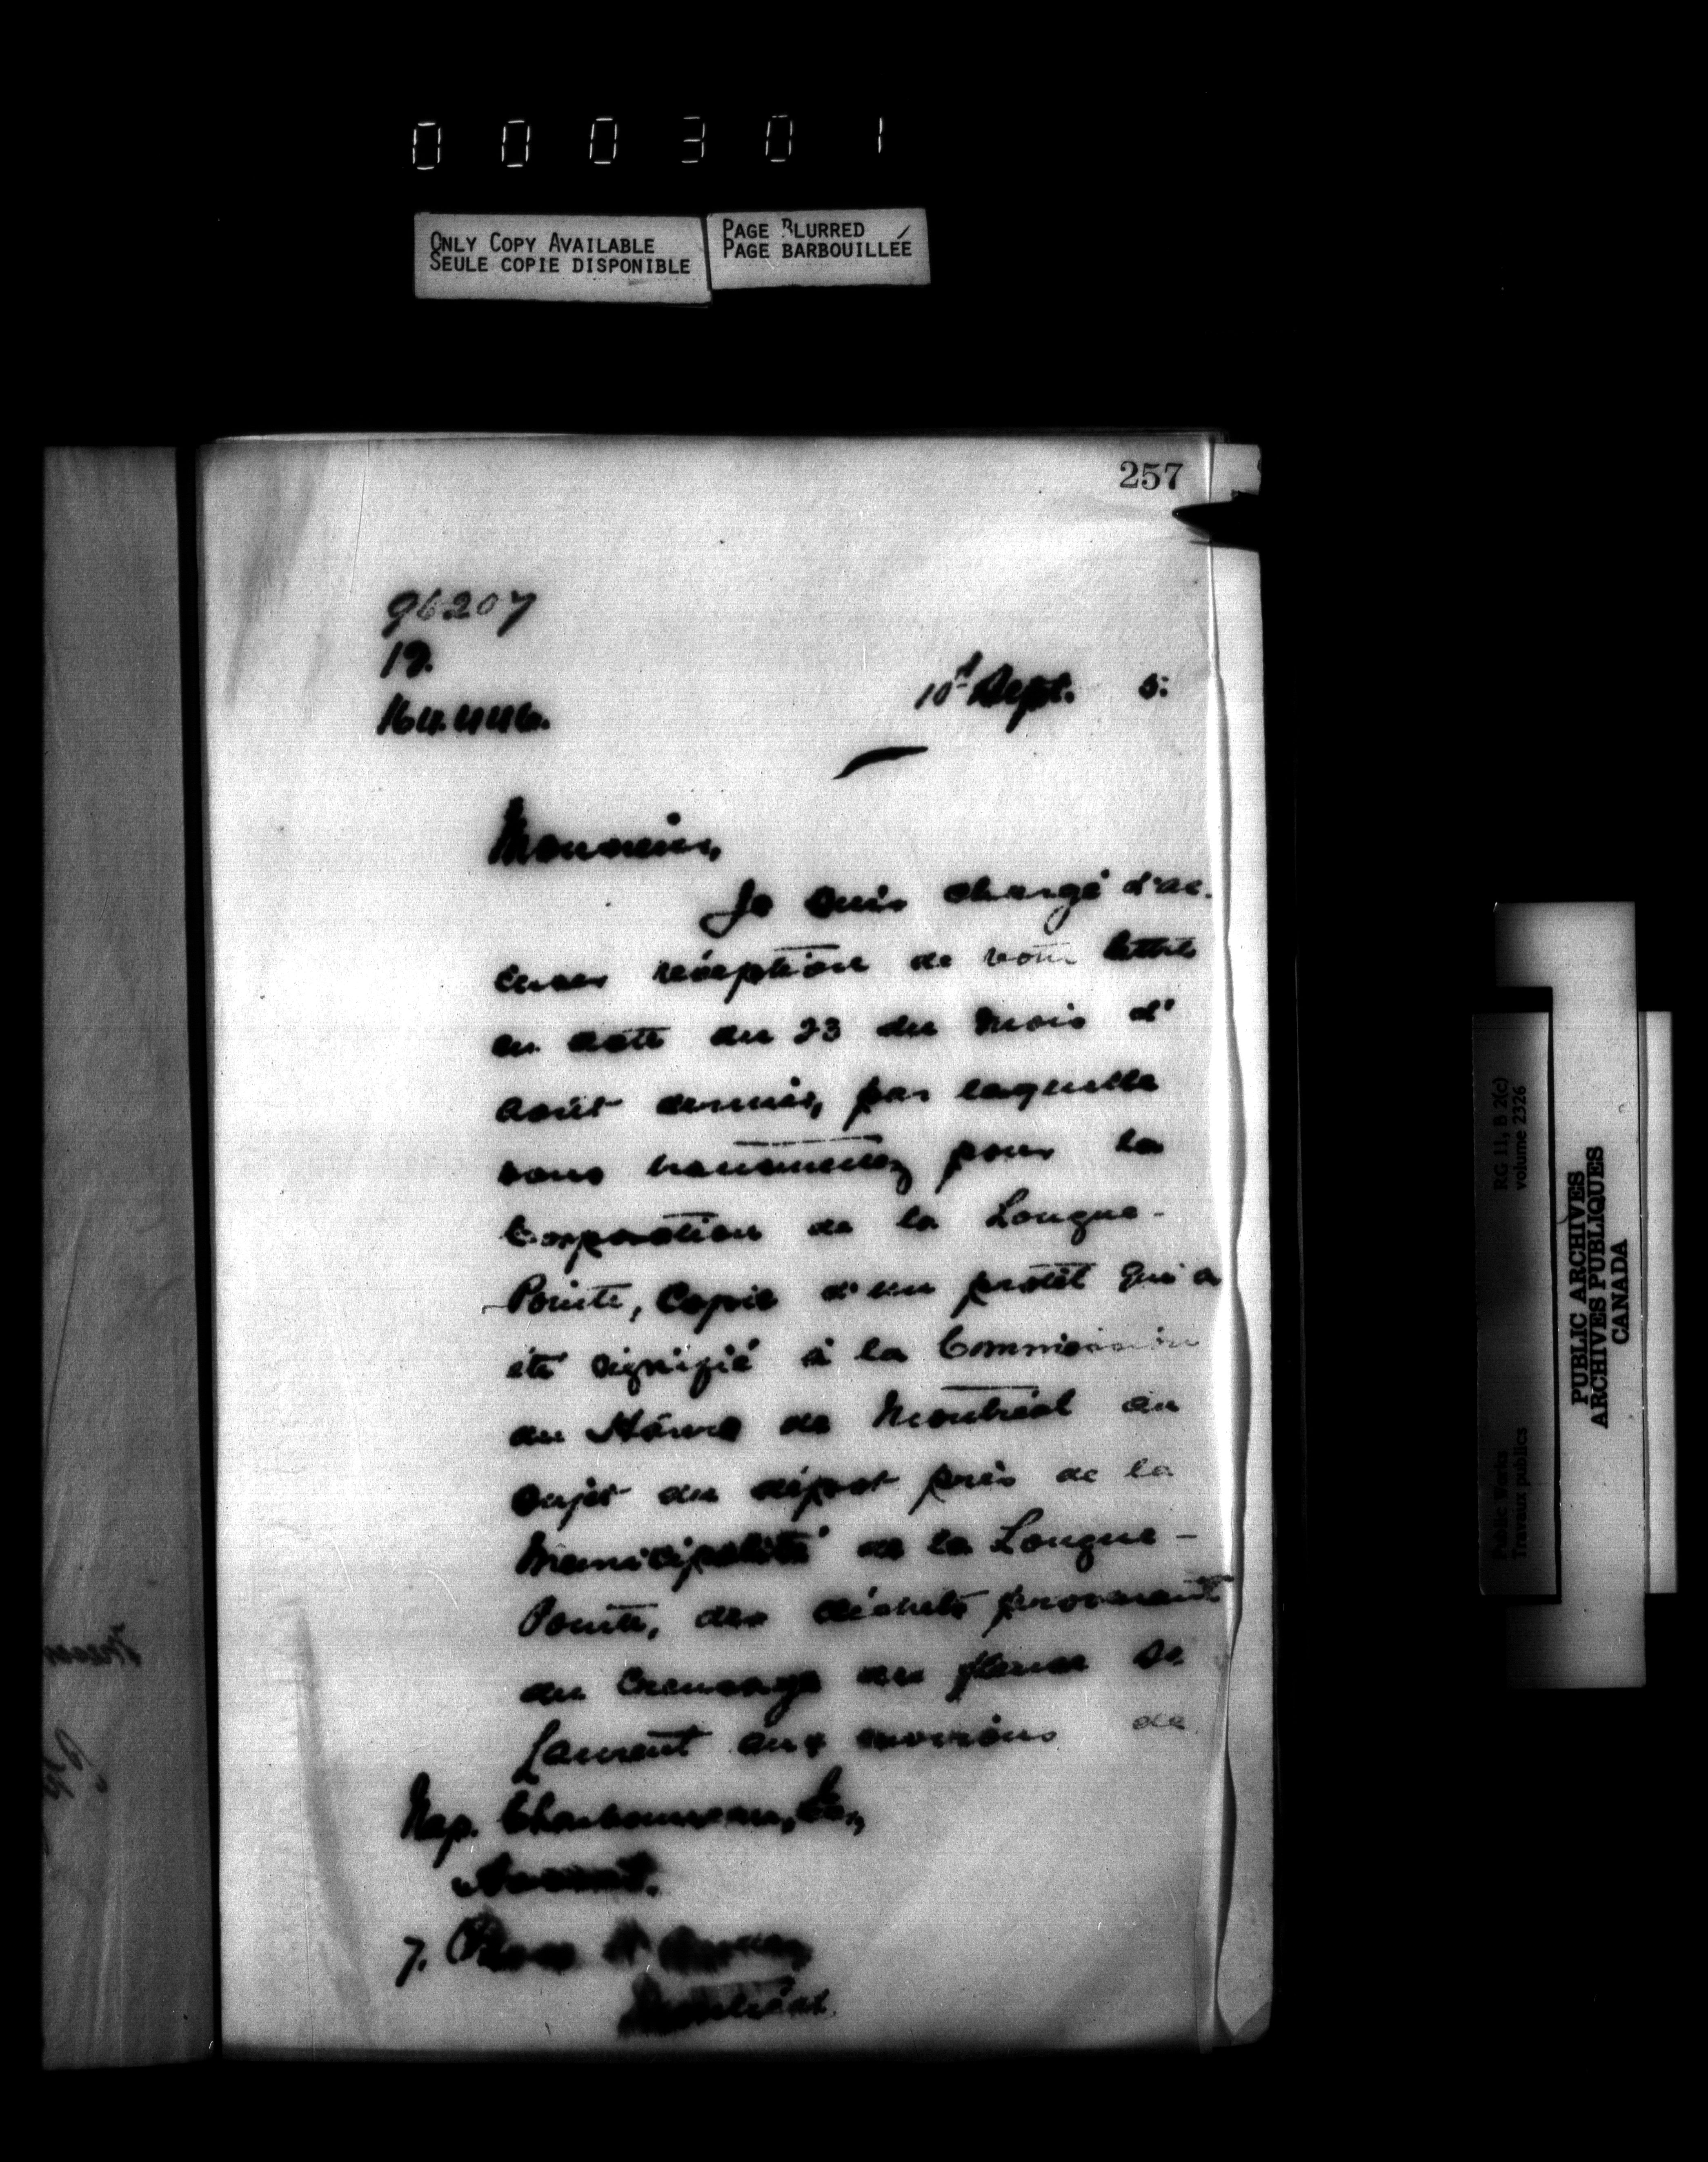 000301
ONLY COPY AVAILABLE
SEULE COPIE DISPONIBLE
PAGE BLURRED
PAGE BARBOUILLÉE
257
96207
19.
164.446.
10 Sept. 5.
Monsieur,
Je suis chargé d'ac-
cuser réception de votre lettre
en date du 23 du mois d'
août dernier, par laquelle
vous transmettez pour la
Corporation de la Longue-
Pointe, copie d'un protêt qui a
été signifié à la Commission
du Hâvre de Montréal au
sujet du dépôt près de la
Municipalité de la Longue-
Pointe, des déchets provenant
du creusage du fleuve St.
Laurent aux environs de
Nap. Charbonneau, Ecr.,
Avocat.
7. Place d'
Montréal.
RG 11, B 2(c)
volume 2326
Public Works
Travaux publics
PUBLIC ARCHIVES
ARCHIVES PUBLIQUES
CANADA